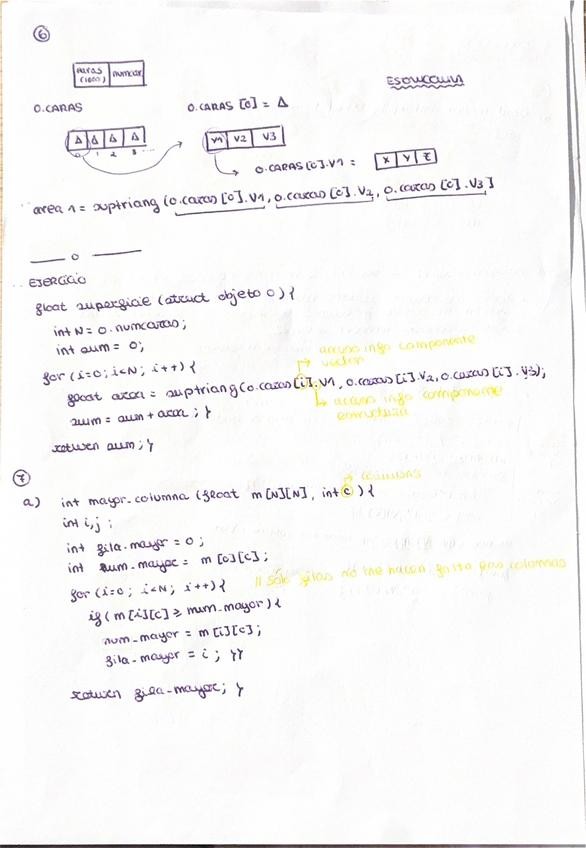 6
caras (1000) numcar
ESTRUCTURA
O.CARAS
O.CARAS [0] = Δ
Δ Δ Δ Δ
0 1 2 3 ...
V1 V2 V3
O.CARAS[0].V1 = X Y Z
area 1 = suptriang (o.caras [0].V1, o.caras [0].V2, o.caras [0].V3]
0
EJERCICIO
float superficie (struct objeto o) {
int N = o.numcaras;
int sum = 0;
for (i=0; i<N; i++) {
acceso info componente
vector
float area = suptriang(o.caras[i].V1, o.caras[i].V2, o.caras[i].V3);
sum = sum + area; }
acceso info componente
estructura
return sum; }
7
columnas
a) int mayor_columna (float m [N][N], int c) {
int i,j ;
int fila_mayor = 0 ;
int num_mayor = m [0][c];
for (i=0; i<N; i++) { // Sólo filas no me hacen falta las columnas
if (m[i][c] ≥ num_mayor) {
num_mayor = m [i][c];
fila_mayor = i ; }}
return fila_mayor; }